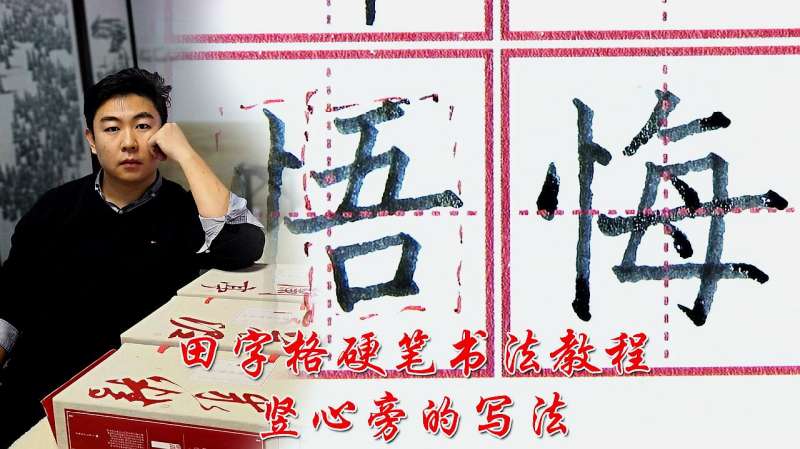 悟 悔
田字格硬笔书法教程
竖心旁的写法